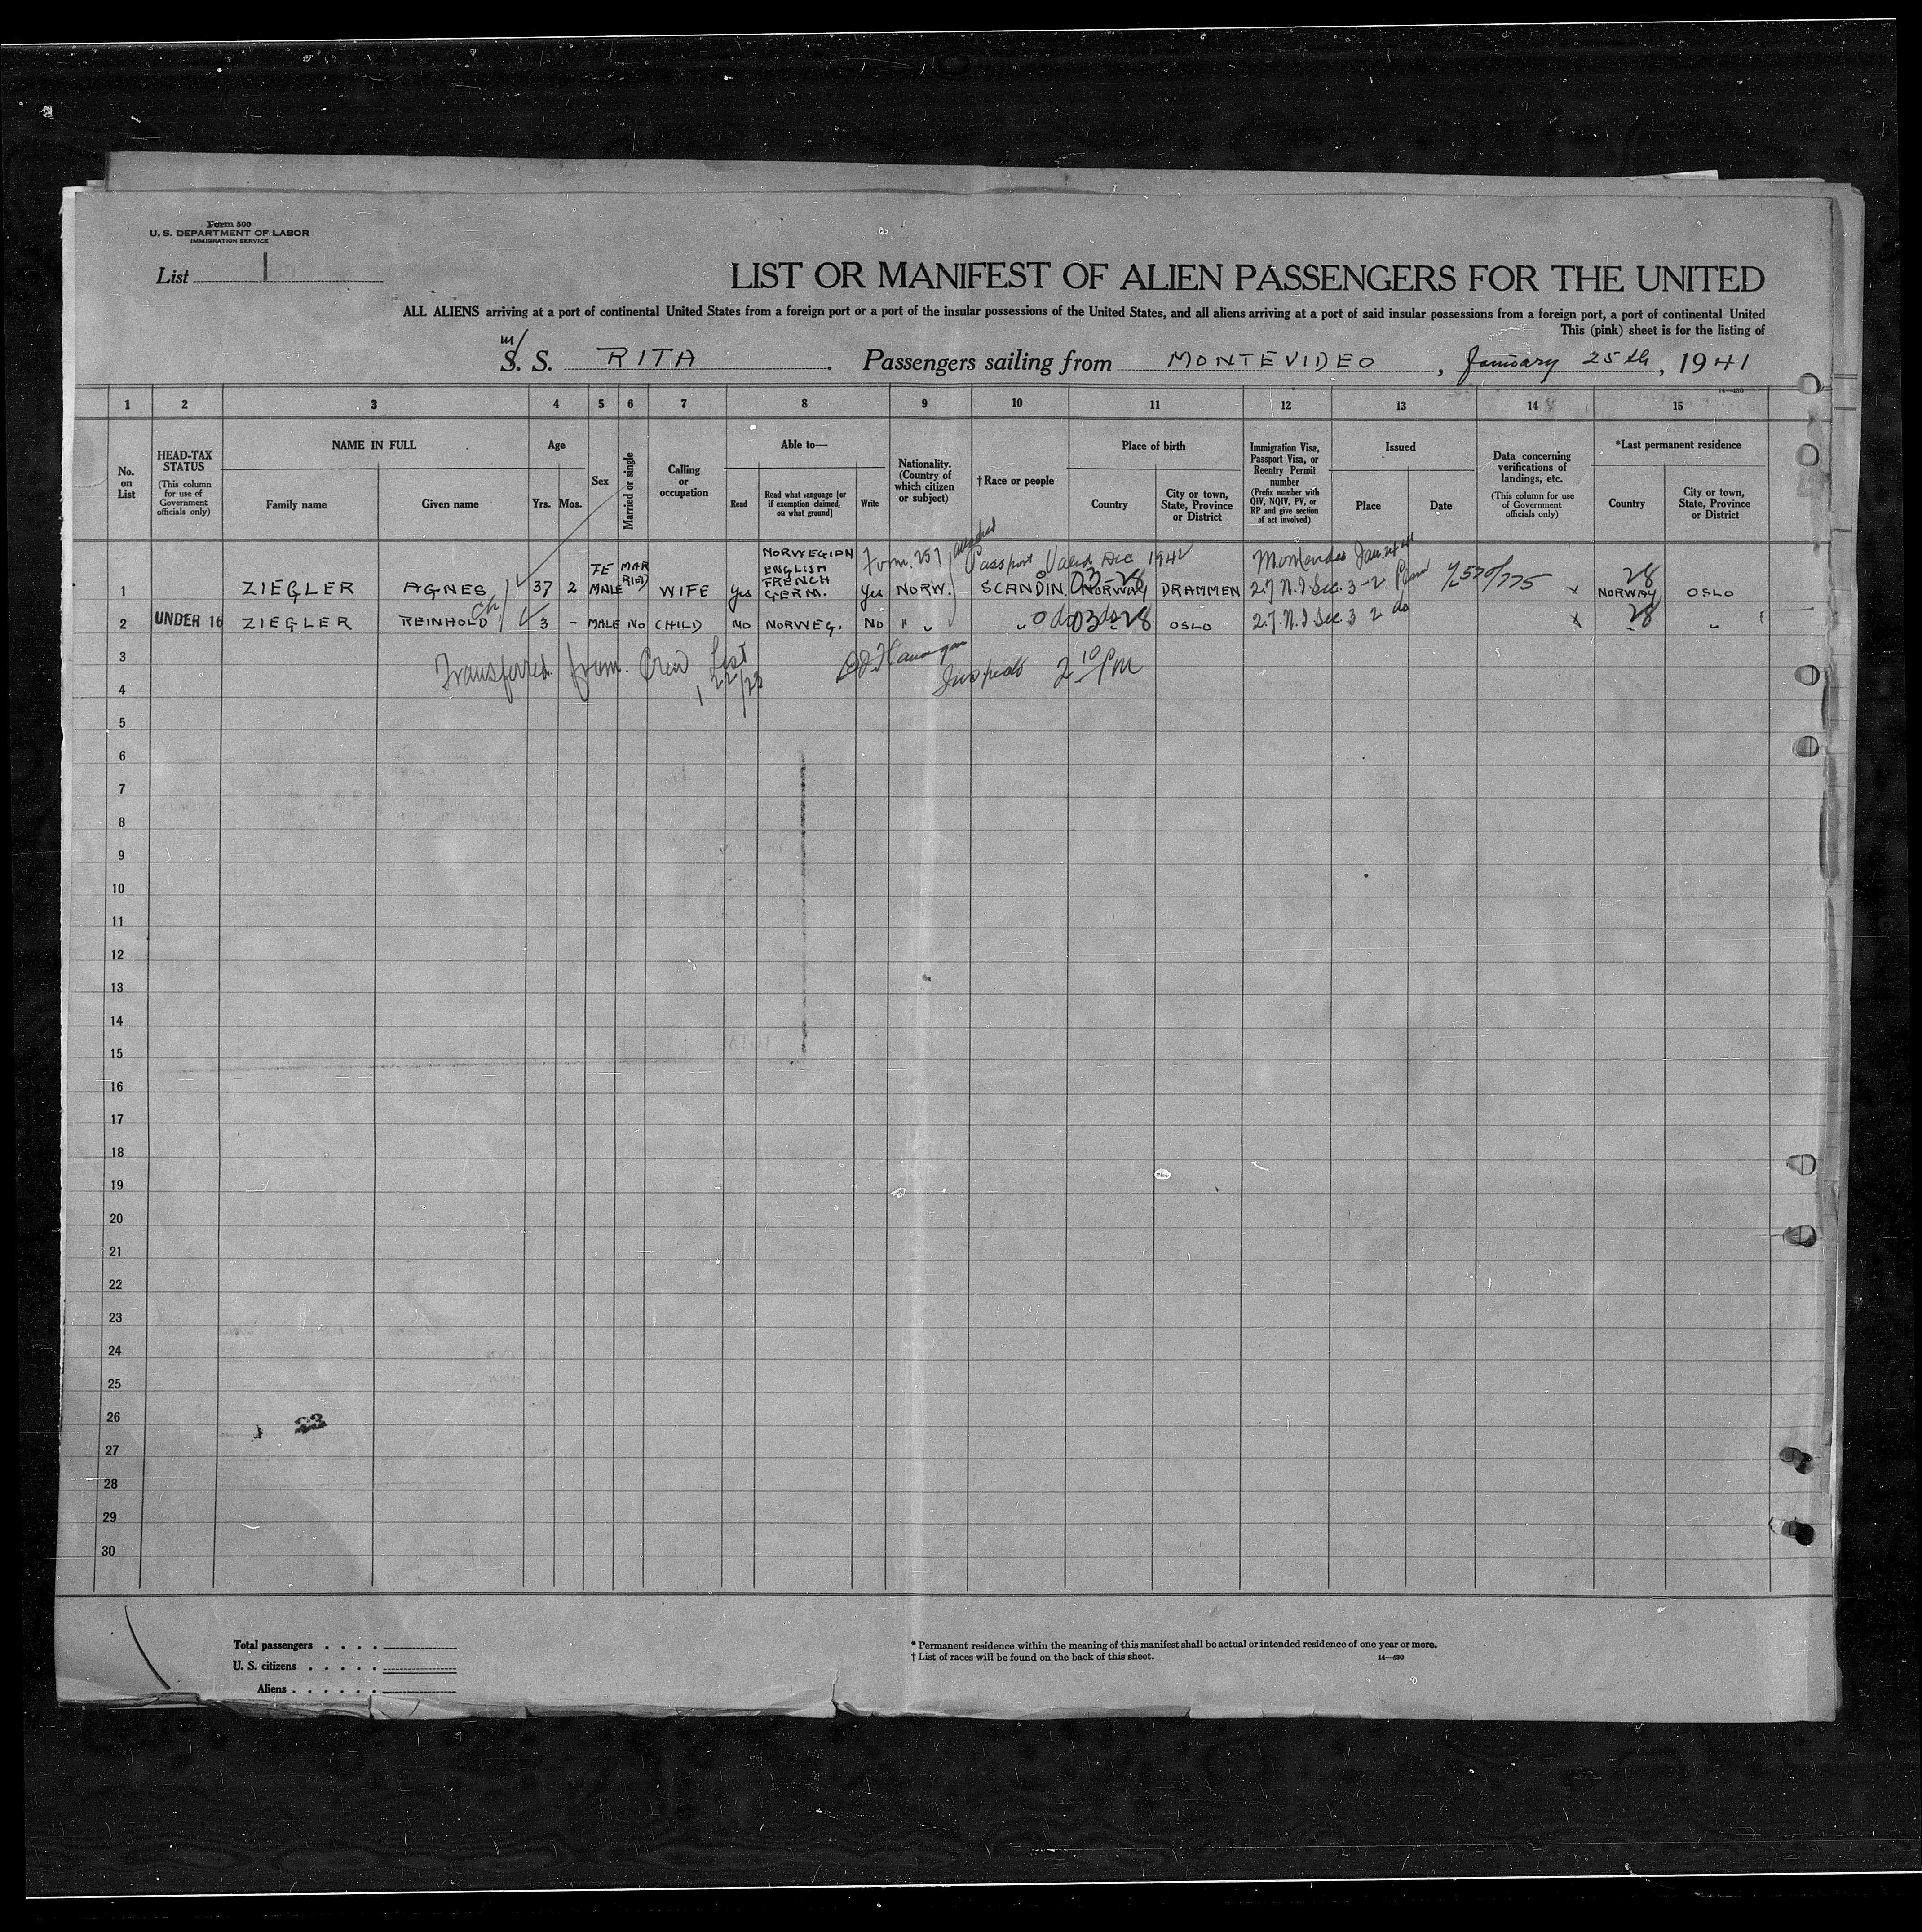 Form 500
U. S. DEPARTMENT OF LABOR
IMMIGRATION SERVICE
List 1
LIST OR MANIFEST OF ALIEN PASSENGERS FOR THE UNITED
ALL ALIENS arriving at a port of continental United States from a foreign port or a port of the insular possessions of the United States, and all aliens arriving at a port of said insular possessions from a foreign port, a port of continental United
This (pink) sheet is for the listing of
m/
S. S. RITA. Passengers sailing from MONTEVIDEO, January 25th, 1941
14—430
1 2 3 4 5 6 7 8 9 10 11 12 13 14 15
No. on List
HEAD-TAX STATUS
(This column for use of Government officials only)
NAME IN FULL
Family name
Given name
Age
Yrs. Mos.
Sex
Married or single
Calling or occupation
Able to—
Read
Read what language [or if exemption claimed, on what ground]
Write
Nationality. (Country of which citizen or subject)
†Race or people
Place of birth
Country
City or town, State, Province or District
Immigration Visa, Passport Visa, or Reentry Permit number
(Prefix number with QIV, NQIV, PV, or RP and give section of act involved)
Issued
Place
Date
Data concerning verifications of landings, etc.
(This column for use of Government officials only)
*Last permanent residence
Country
City or town, State, Province or District
Form 257 Passport Valid Dec 1942 Montevideo Jan. 24 41
1 ZIEGLER AGNES 37 2 FEMALE MARRIED WIFE Yes NORWEGIAN ENGLISH FRENCH GERM. Yes NORW. SCANDIN. 03-28 NORWAY DRAMMEN 27 N.I Sec. 3-2 x 28 NORWAY OSLO
2 UNDER 16 ZIEGLER REINHOLD ch 3 - MALE NO CHILD NO NORWEG. NO " " " do 03 do 28 OSLO 27 N.I Sec 3 2 do x 28 " "
3 Transferred from Crew List
4 1 22/23 Inspector 2 10 PM
5
6
7
8
9
10
11
12
13
14
15
16
17
18
19
20
21
22
23
24
25
26
27
28
29
30
Total passengers . . . .
U. S. citizens . . . . .
Aliens . . . . . .
* Permanent residence within the meaning of this manifest shall be actual or intended residence of one year or more.
† List of races will be found on the back of this sheet.
14—430